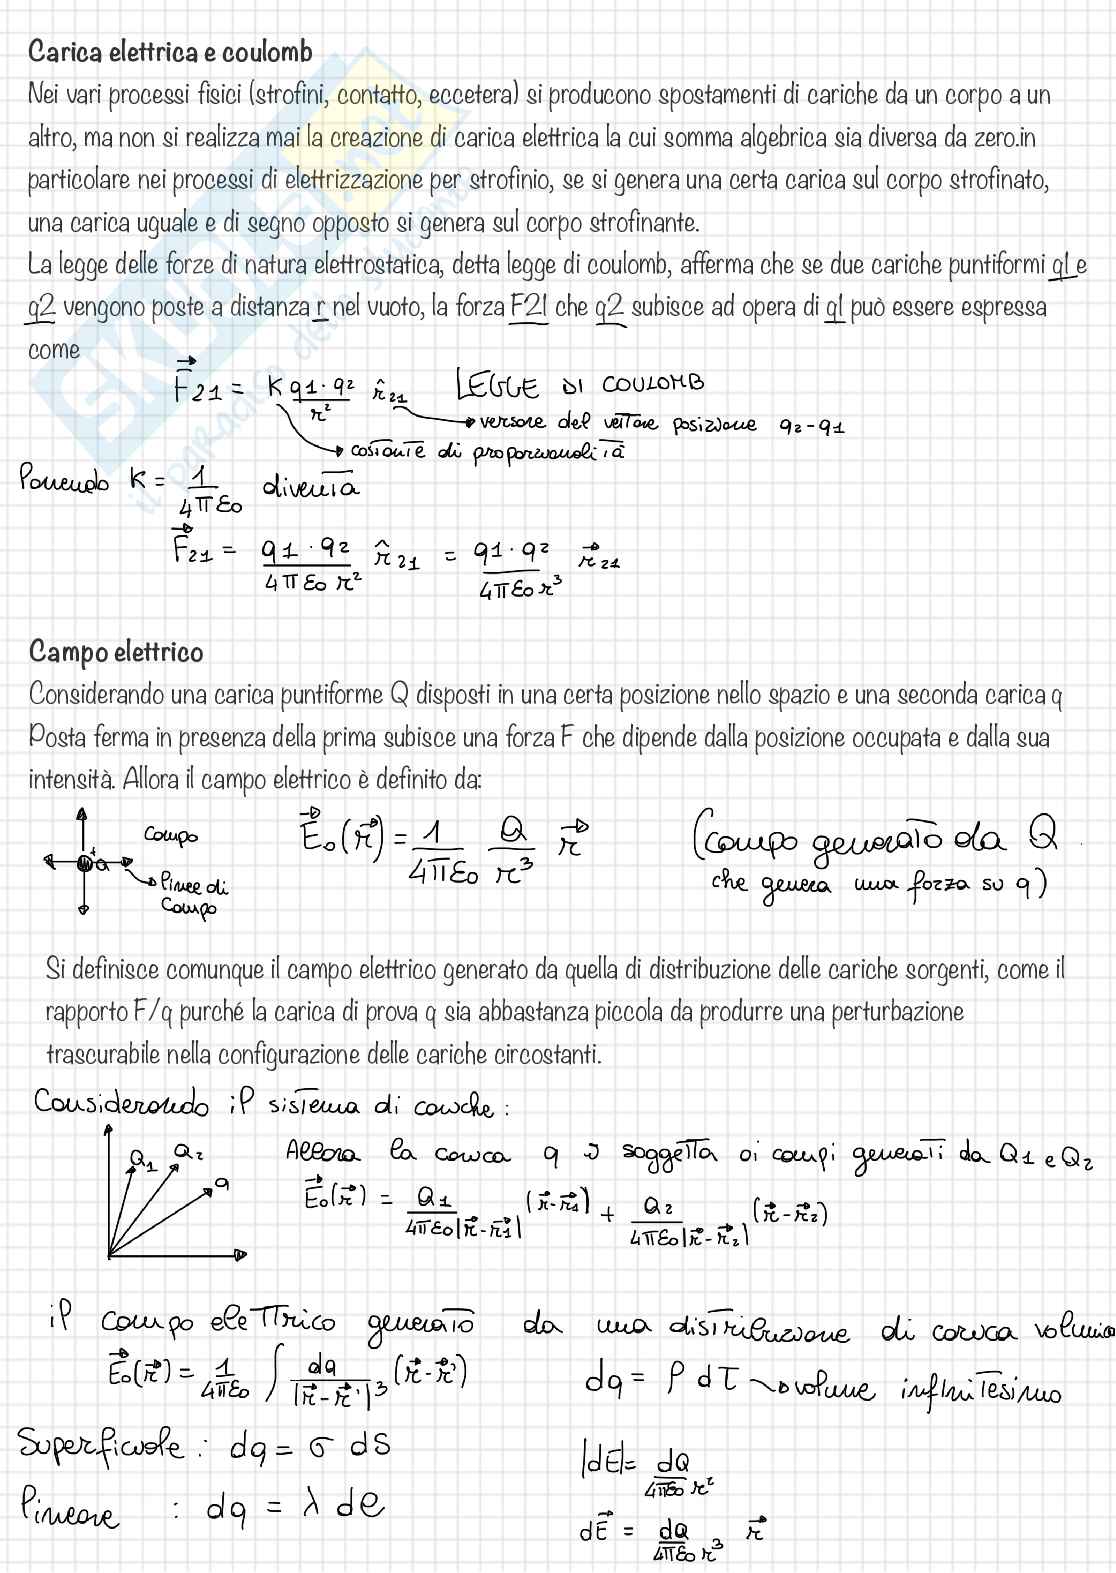 Carica elettrica e coulomb
Nei vari processi fisici (strofini, contatto, eccetera) si producono spostamenti di cariche da un corpo a un
altro, ma non si realizza mai la creazione di carica elettrica la cui somma algebrica sia diversa da zero.in
particolare nei processi di elettrizzazione per strofinio, se si genera una certa carica sul corpo strofinato,
una carica uguale e di segno opposto si genera sul corpo strofinante.
La legge delle forze di natura elettrostatica, detta legge di coulomb, afferma che se due cariche puntiformi q1 e
q2 vengono poste a distanza r nel vuoto, la forza F21 che q2 subisce ad opera di q1 può essere espressa
come
F⃗21 = K q1·q2/r² r̂21 LEGGE DI COULOMB
versore del vettore posizione q2-q1
costante di proporzionalità
Ponendo K = 1/4πε0 diventa
F⃗21 = q1·q2/4πε0r² r̂21 = q1·q2/4πε0r³ r⃗21
Campo elettrico
Considerando una carica puntiforme Q disposti in una certa posizione nello spazio e una seconda carica q
Posta ferma in presenza della prima subisce una forza F che dipende dalla posizione occupata e dalla sua
intensità. Allora il campo elettrico è definito da:
campo
+ Q
linee di
campo
E⃗0(r⃗) = 1/4πε0 Q/r³ r⃗
(campo generato da Q
che genera una forza su q)
Si definisce comunque il campo elettrico generato da quella di distribuzione delle cariche sorgenti, come il
rapporto F/q purché la carica di prova q sia abbastanza piccola da produrre una perturbazione
trascurabile nella configurazione delle cariche circostanti.
Considerando il sistema di cariche:
Q1 Q2
q
Allora la carica q è soggetta ai campi generati da Q1 e Q2
E⃗0(r⃗) = Q1/4πε0|r⃗-r⃗1| (r⃗-r⃗1) + Q2/4πε0|r⃗-r⃗2| (r⃗-r⃗2)
il campo elettrico generato da una distribuzione di carica volumica
E⃗0(r⃗) = 1/4πε0 ∫ dq/|r⃗-r⃗'|³ (r⃗-r⃗')
dq = ρ dτ → volume infinitesimo
Superficiale: dq = σ dS
lineare : dq = λ dl
|dE| = dQ/4πε0 r²
dE⃗ = dQ/4πε0 r³ r⃗
SKUOLA.net